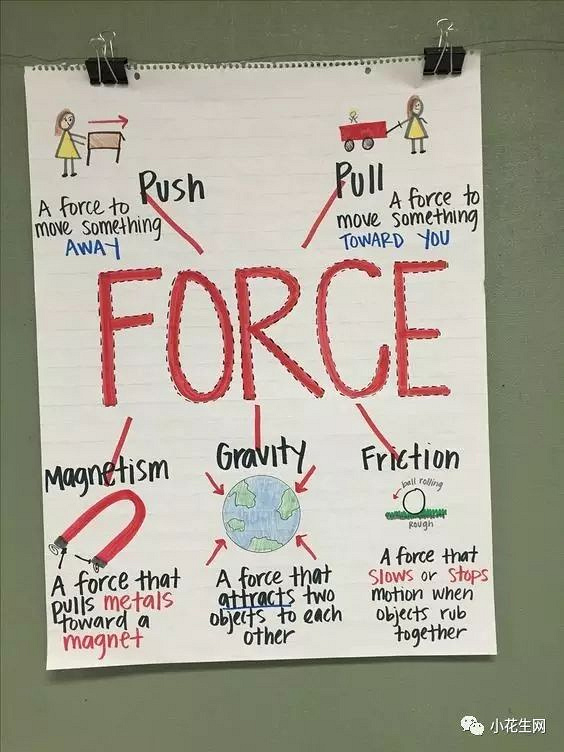 Push
A force to
move something
AWAY
Pull
A force to
move something
TOWARD YOU
FORCE
Magnetism
A force that
pulls metals
toward a
magnet
Gravity
A force that
attracts two
objects to each
other
Friction
ball rolling
rough
A force that
slows or stops
motion when
objects rub
together
小花生网